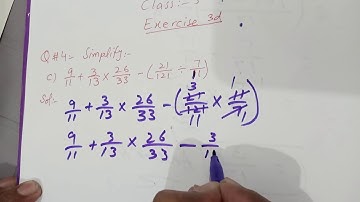 Class:-
Exercise 3d
Q#4:- Simplify:-
c) 9/11 + 3/13 × 26/33 - (21/121 ÷ 7/11)
Sol:- 9/11 + 3/13 × 26/33 - (21/121 × 11/7) 3 11 1 1
9/11 + 3/13 × 26/33 - 3/11